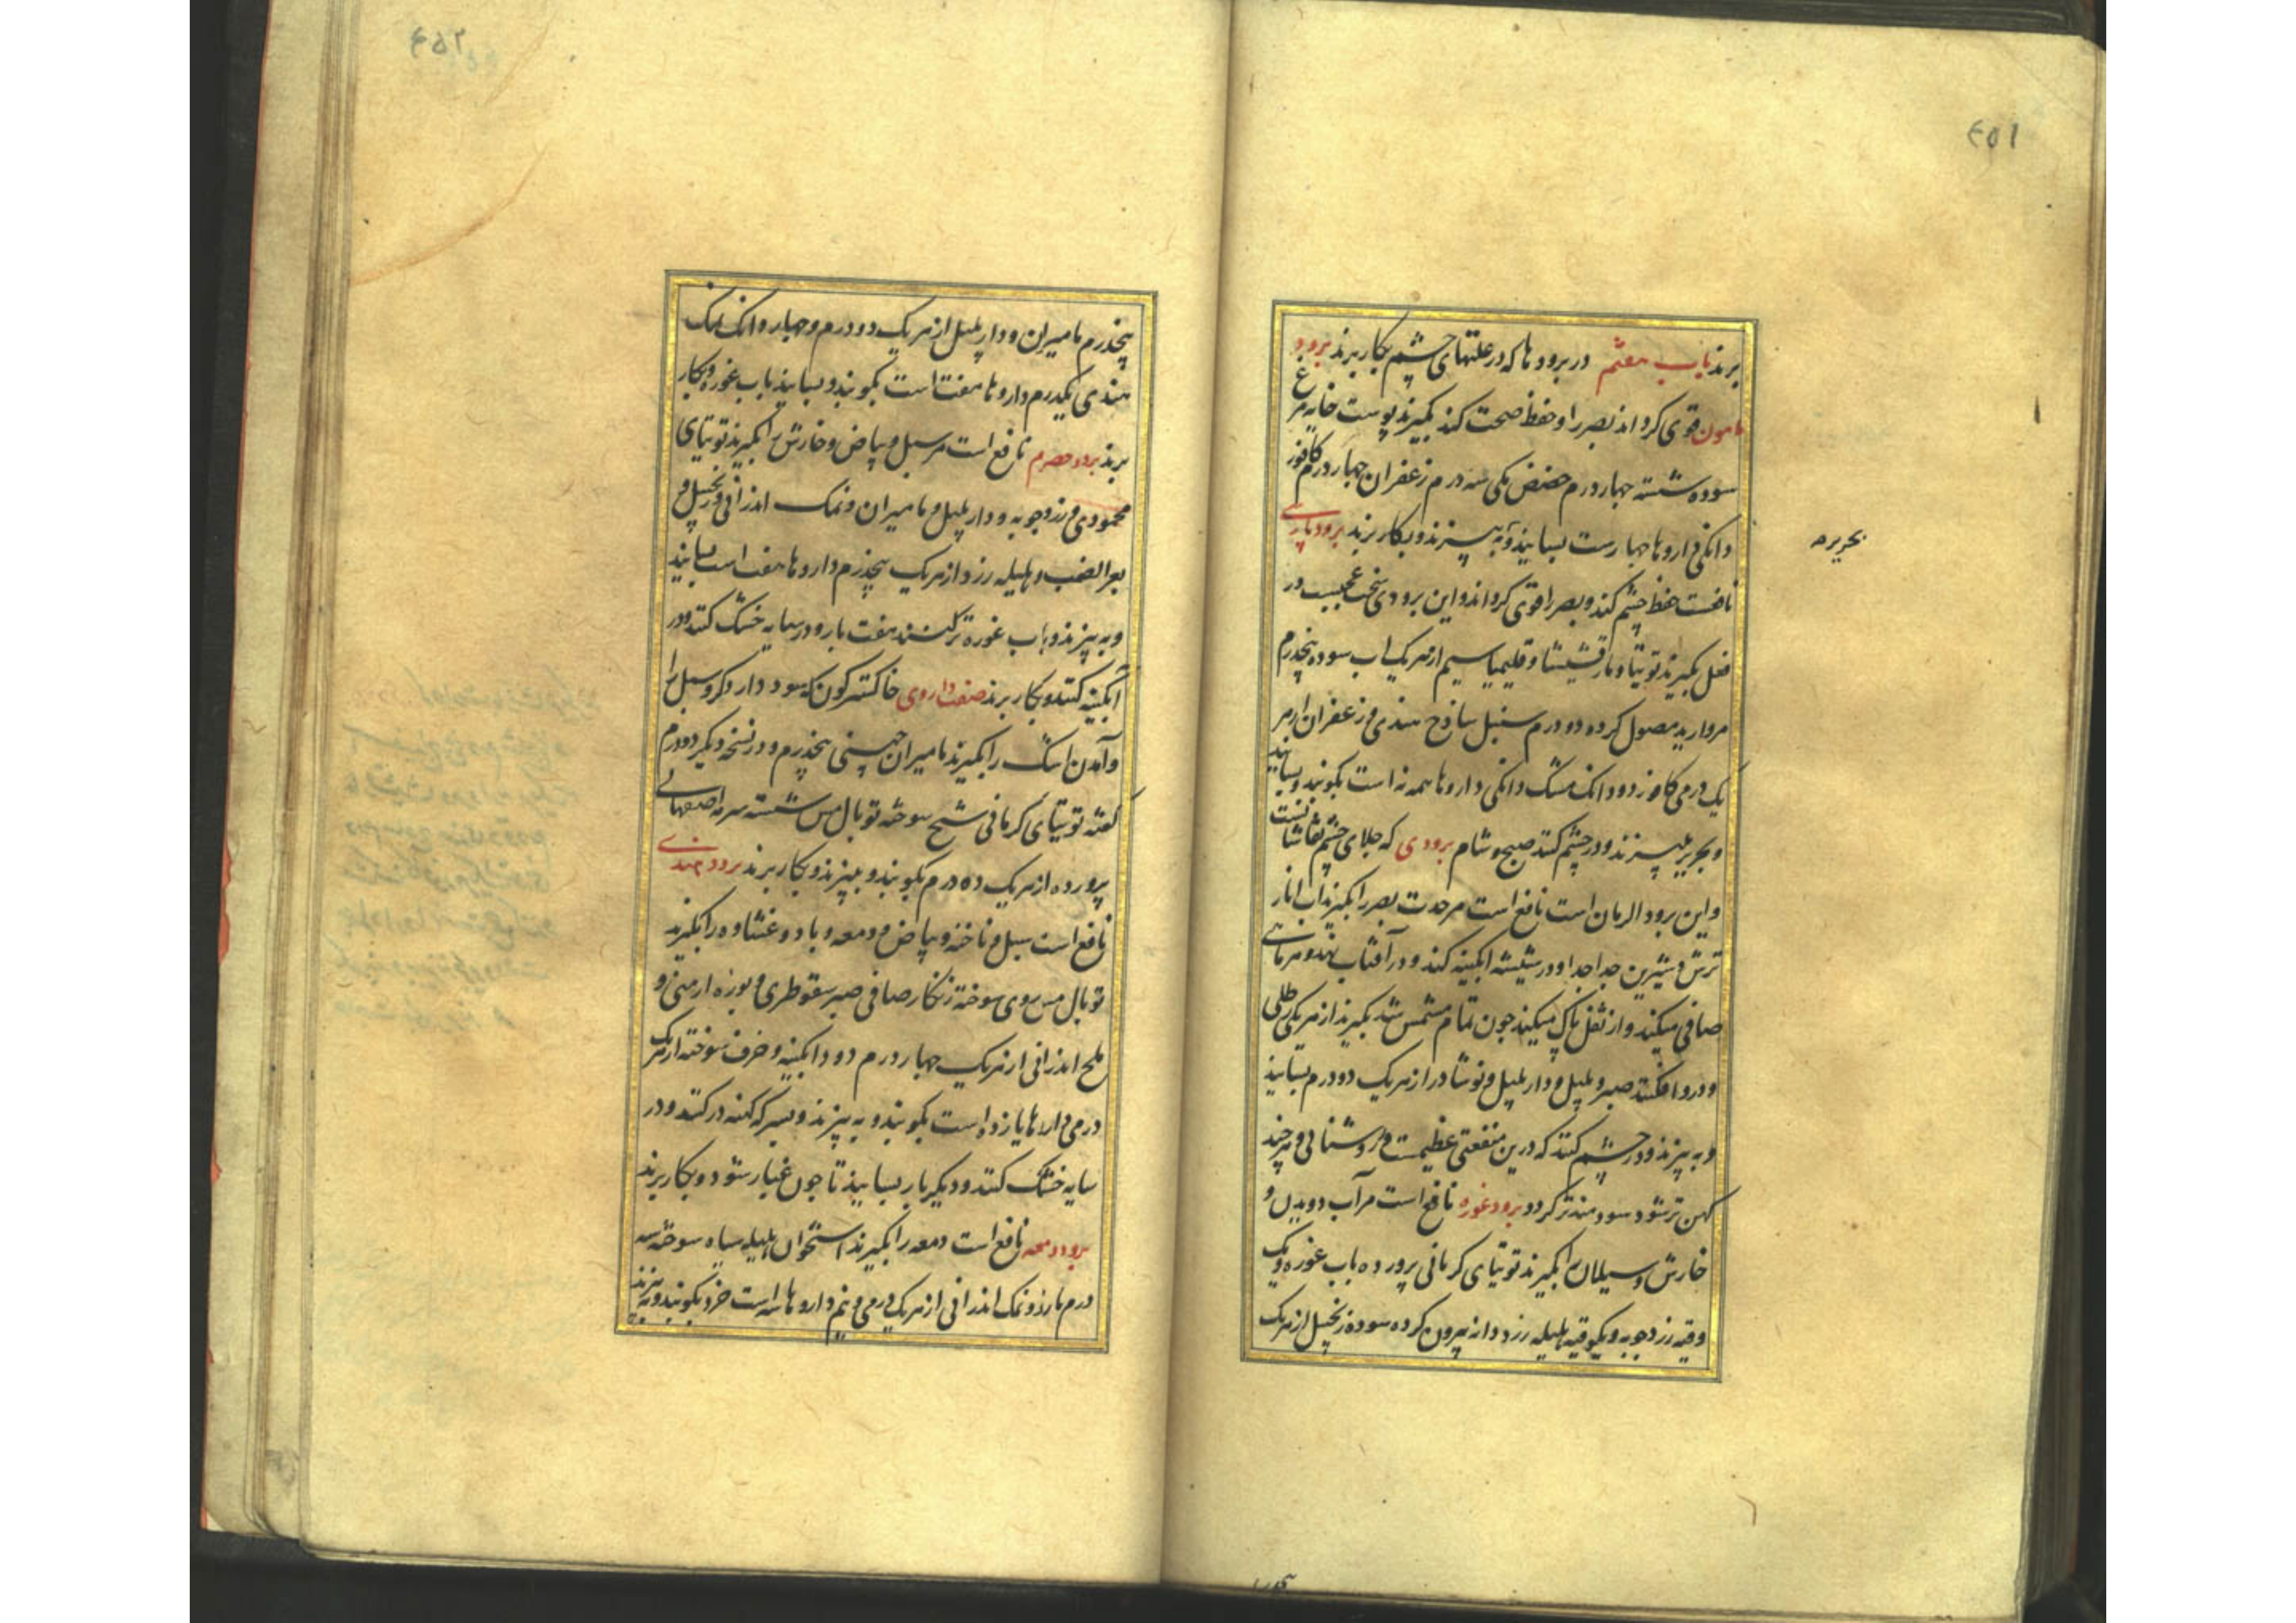 ۴۵۱
برند باب هفتم در برودها که در علتهای چشم بکار برند برود
مامون قوی کرداند بصر را و حفظ صحت کند بکیرند پوست خایه مرغ
سوده شسته چهار درم حضض مکی سه درم زعفران چهار درم کافور
دانکی داروها چهارست بسایند و به بیزند و بکار برند برود پارسی
نافعست حفظ چشم کند و بصر را قوی کرداند و این برودی سخت عجیبست در
فعل بکیرند توتیا و مارقشیشا و قلیمیا سیم از هر یک اب سوده پنجدرم
مروارید مصول کرده دو درم سنبل ساذج هندی و زعفران از هر
یک درمی کافور دو دانک مشک دانکی داروها همه نه است بکوبند و بسایند
و بحریر بپیزند و در چشم کنند صبح و شام برودی که جلای چشم نقاشانست
و این برود الرمان است نافع است مر حدت بصر را بکیرند اب انار
ترش و شیرین جدا جدا و در شیشه ابکینه کنند و در آفتاب نهند و هر ماهی
صافی میکنند و از ثفل پاک میکنند چون تمام مشمس شد بکیرند از هر یکی رطلی
و درو افکنند صبر و پلپل و دار پلپل و نوشادر از هر یک دو درم بسایند
و به بیزند و در چشم کنند که درین منفعتی عظیمست و روشنائی و هر چند
کهن تر شود سودمندتر کردد برود غوره نافع است مر آب دویدن و
خارش و سیلان را بکیرند توتیای کرمانی پرورده باب غوره و یک
وقیه زردچوبه و یکوقیه هلیله زرد دانه بیرون کرده سوده زنجبیل از هر یک
بحریره
۴۵۲
پنجدرم مامیران و دار پلپل از هر یک دو درم و چهار دانک نمک
هندی یکدرم داروها هفت است بکوبند و بسایند باب غوره و بکار
برند برود حصرم نافع است مر سبل و بیاض و خارش را بکیرند توتیای
محمودی و زردچوبه و دار پلپل و مامیران و نمک اندرانی و زنجبیل و
بعر الضب و هلیله زرد از هر یک پنجدرم داروها هفت است بسایند
و به بیزند و باب غوره تر کنند هفت بار و در سایه خشک کنند و در
آبکینه کنند و بکار برند صفت داروی خاکستر کون که سود دارد کر و سبل را
و آمدن اشک را بکیرند مامیران چینی پنجدرم و در نسخه دیکر دو درم
کفته توتیای کرمانی شیح سوخته توبال مس شسته سرمه اصفهانی
پرورده از هر یک ده درم بکوبند و ببیزند و بکار برند برود هندی
نافع است سبل و ناخنه و بیاض و دمعه و باد و غشاوه را بکیرند
توبال مس روی سوخته زنکار صافی صبر سقوطری و بوره ارمنی و
ملح اندرانی از هر یک چهار درم دود ابکینه و خزف سوخته از هر یک
درمی داروها یازده است بکوبند و به بیزند و بسرکه کهنه در کنند و در
سایه خشک کنند و دیکر بار بسایند تا چون غبار شود و بکار برند
برود دمعه نافع است دمعه را بکیرند استخوان هلیله سیاه سوخته سه
درم مازو و نمک اندرانی از هر یک درمی و نیم داروها سه است خرد بکوبند و به بیزند